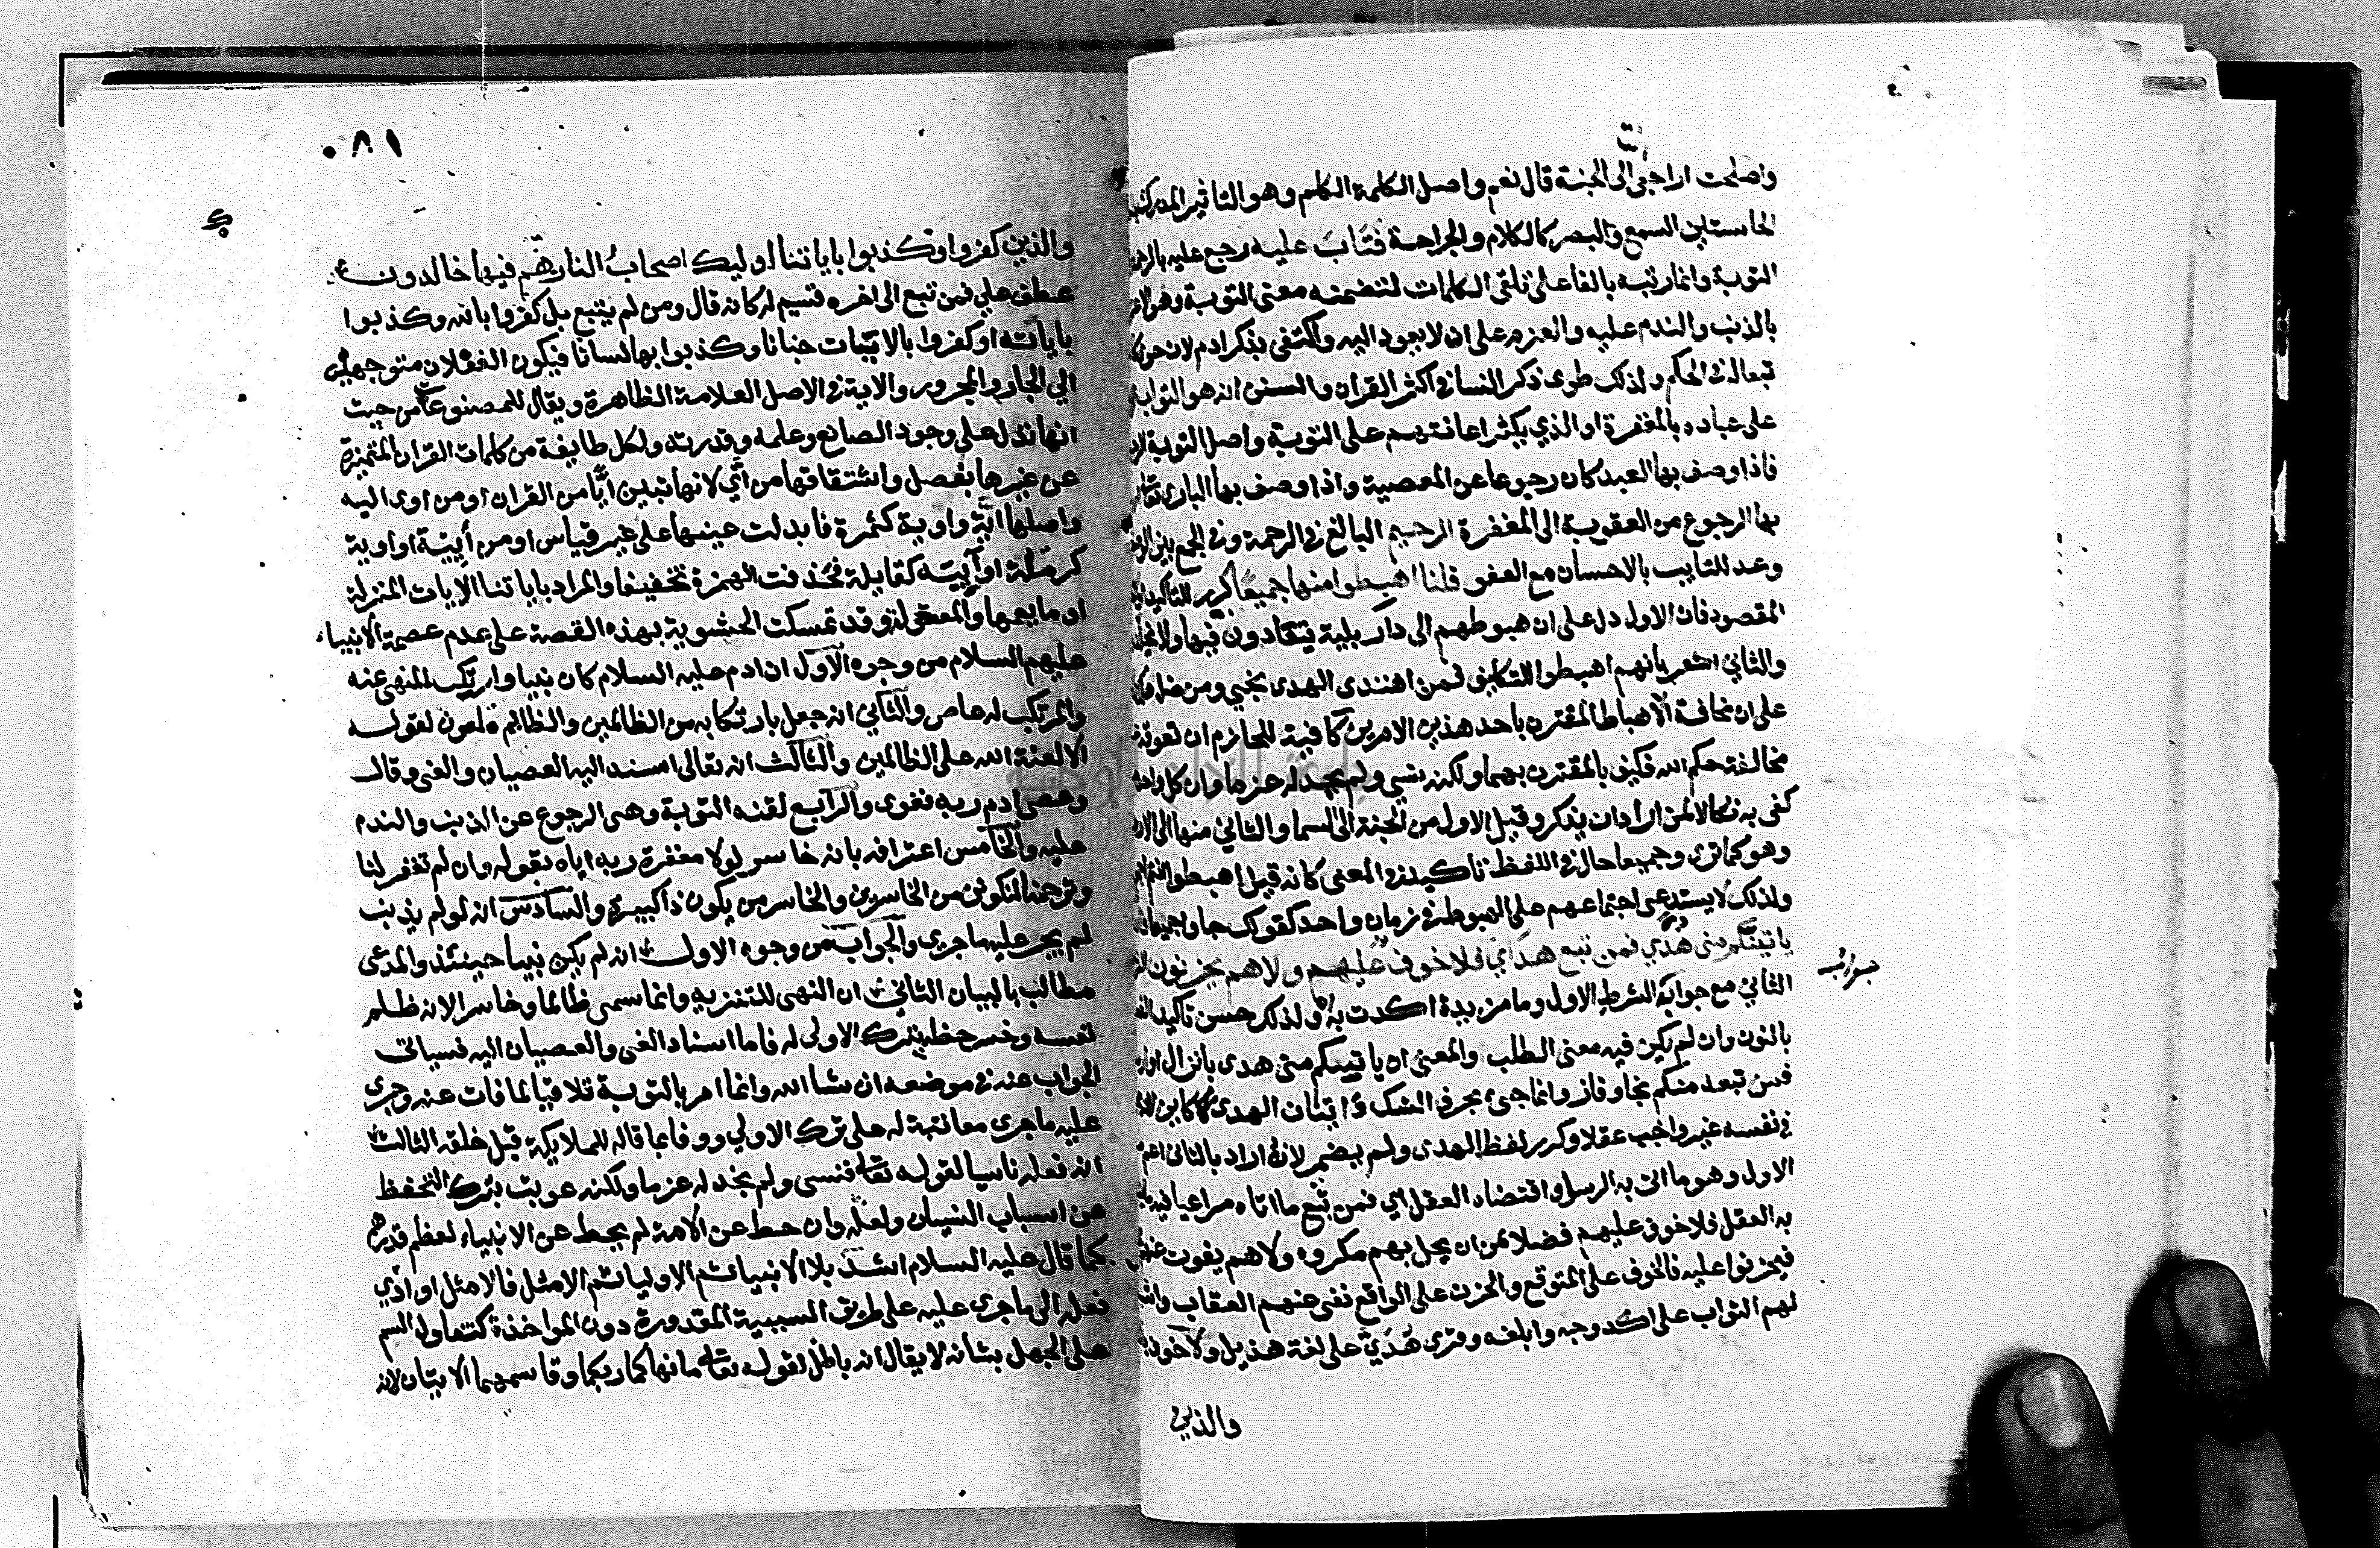 واصلحت اراجعي الى الجنة قال نعم واصل الكلمة الكلم وهو التاثير المدرك
الحاستين السمع والبصر كالكلام والجراحة فتاب عليه رجع عليه
التوبة وانما رتبه بالفا على تلقي الكلمات لتضمنه معنى التوبة وهو
بالذنب والندم عليه والعزم على ان لا يعود اليه واكتفى بذكر ادم لان حوا
تبعا له في الحكم ولذلك طوى ذكر النسا في اكثر القران والسنن انه هو التواب
على عباده بالمغفرة او الذي يكثر اعانتهم على التوبة واصل التوبة
فاذا وصف بها العبد كان رجوعا عن المعصية واذا وصف بها الباري تعالى
بها الرجوع من العقوبة الى المغفرة الرحيم البالغ في الرحمة وفي الجمع بين
وعد للتايب بالاحسان مع العفو قلنا اهبطوا منها جميعا كرر للتاكيد
المقصود فان الاول دل على ان هبوطهم الى دار بلية يتعادون فيها ولا
والثاني اشعر بانهم اهبطوا للتكليف فمن اهتدى الهدى نجي ومن ضل
على ان مخافة الاهباط المقترن باحد هذين الامرين كافية للحازم ان تعوقه
مخالفة حكم الله فكيف بالمقترن بهما ولكنه نسي ولم نجد له عزما وان كل واحد
كفى به نكالا لمن اراد ان يذكر وقيل الاول من الجنة الى السما والثاني منها الى
وهو كما ترى وجميعا حال في اللفظ تاكيد في المعنى كانه قيل اهبطوا انتم
ولذلك لا يستدعي اجتماعهم على الهبوط في زمان واحد كقولك جاوا جميعا
ياتينكم مني هدي فمن تبع هداي فلا خوف عليهم ولا هم يحزنون
الثاني مع جوابه الشرط الاول وما مزيدة اكدت به ولذلك حسن تاكيد
بالنون وان لم يكن فيه معنى الطلب والمعنى ان ياتينكم مني هدى بانزال
فمن تبعه منكم نجا وفاز وانما جئ بحرف الشك واتيان الهدى كاين
في نفسه غير واجب عقلا وكرر لفظ الهدى ولم يضمر لانه اراد بالثاني اعم
الاول وهو ما اتى به الرسل واقتضاه العقل اي فمن تبع ما اتاه مراعيا فيه
به العقل فلا خوف عليهم فضلا من ان يحل بهم مكروه ولا هم يفوت عنهم
فيحزنوا عليه فالخوف على المتوقع والحزن على الواقع نفى عنهم العقاب
لهم الثواب على اكد وجه وابلغه وقرى هدي على لغة هذيل ولا خوف
والذين
٠٨١
والذين كفروا وكذبوا باياتنا اوليك اصحاب النار هم فيها خالدون
عطف على فمن تبع الى اخره قسيم له كانه قال ومن لم يتبع بل كفروا بالله وكذبوا
باياته او كفروا بالايات جنانا وكذبوا بها لسانا فيكون الفعلان متوجهين
الي الجار والمجرور والاية في الاصل العلامة الظاهرة ويقال للمصنوعات من حيث
انها تدل على وجود الصانع وعلمه وقدرته ولكل طايفة من كلمات القران المتميزة
عن غيرها بفصل واشتقاقها من اي لانها تبين ايا من القران او من اوى اليه
واصلها اية واوية كتمرة فابدلت عينها على غير قياس او من أييه او اوية
كرملة او آييه كقايلة فحذفت الهمزة تخفيفا والمراد باياتنا الايات المنزلة
او ما يعمها والمعقولة وقد تمسكت الحشوية بهذه القصة على عدم عصمة الانبياء
عليهم السلام من وجوه الاول ان ادم عليه السلام كان نبيا وارتكب المنهي عنه
والمرتكب له عاص والثاني انه جعل بارتكابه من الظالمين والظالم ملعون لقوله
الا لعنة الله على الظالمين والثالث انه تعالى اسند اليه العصيان والغي وقال
وعصى ادم ربه فغوى والرابع لقنه التوبة وهي الرجوع عن الذنب والندم
عليه والخامس اعترافه بانه خاسر لولا مغفرة ربه اياه بقوله وان لم تغفر لنا
وترحمنا لنكونن من الخاسرين والخاسر من يكون ذا كبيرة والسادس انه لو لم يذنب
لم يجر عليه ما جرى والجواب من وجوه الاول انه لم يكن نبيا حينئذ والمدعي
مطالب بالبيان الثاني ان النهي للتنزيه وانما سمى ظالما وخاسرا لانه ظلم
نفسه وخسر حظه بترك الاولى له فاما اسناد الغي والعصيان اليه فسياتي
الجواب عنه في موضعه ان شا الله وانما امر بالتوبة تلافيا لما فات عنه وجرى
عليه ما جرى معاتبة له على ترك الاولي ووفا بما قاله للملايكة قبل خلقه الثالث
انه فعله ناسيا لقوله تعا فنسى ولم نجد له عزما ولكنه عوتب بترك التحفظ
عن اسباب النسيان ولعله وان حط عن الامة لم يحط عن الانبياء لعظم قدرهم
كما قال عليه السلام اشد بلا الانبيا ثم الاوليا ثم الامثل فالامثل او ادي
فعله الى ما جرى عليه على طريق السببية المقدورة دون المواخذة كتناول السم
على الجهل بشانه لا يقال انه باطل لقوله تعا ما نهاكما ربكما وقاسمهما الايتان لانه